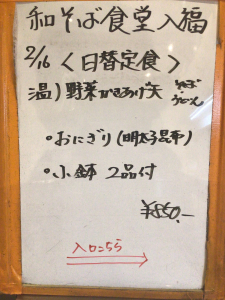 和そば食堂入福
2/16 〈日替定食〉
温）野菜かきあげ天 そば・うどん
・おにぎり（明太子昆布）
・小鉢 2品付
¥850.-
入口こちら